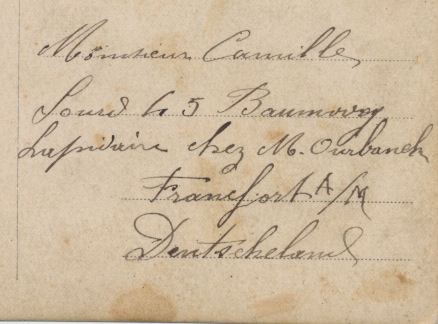 Monsieur Camille
Lourd 45 Baumweg
Lapidaire chez M. Ourbanek
Francfort A/M
Deutscheland